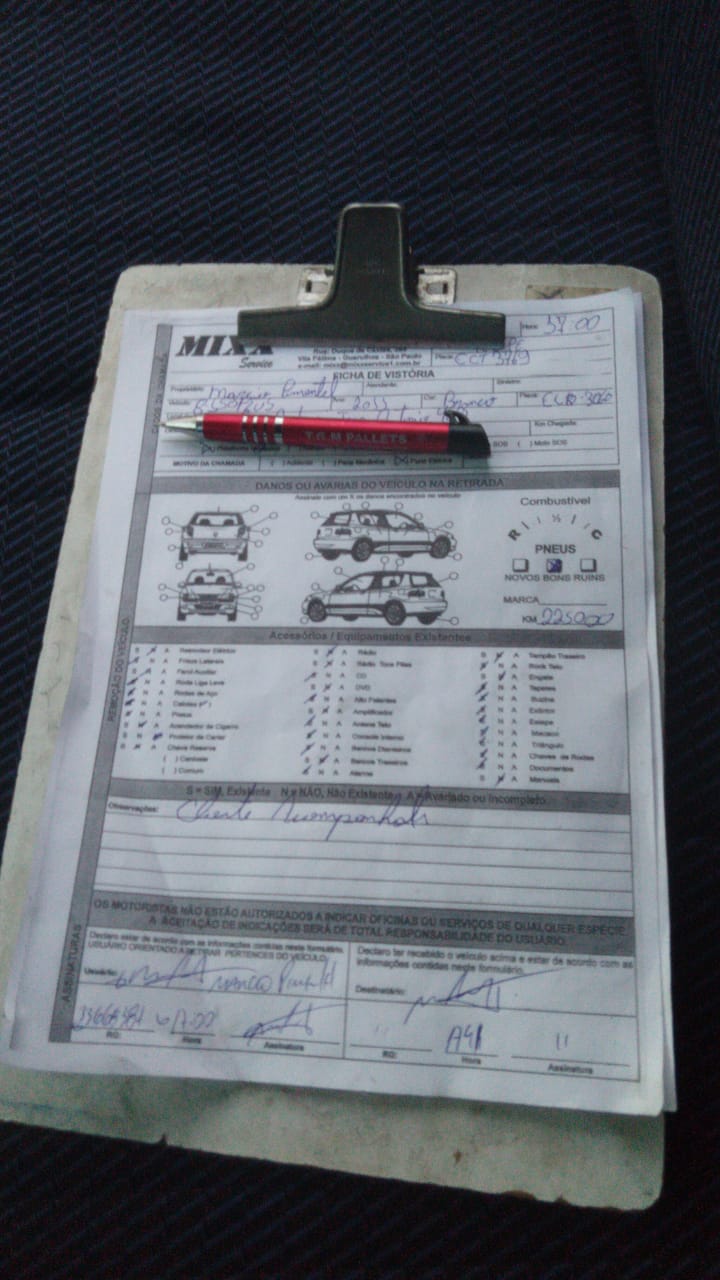 MIXA
Service
Rua: Duque de Caxias,
Vila Fátima - Guarulhos - São Paulo
e-mail: mixa@mixaservice1.com.br
Hora:
Placa:
FICHA DE VISTÓRIA
Proprietário: Pimentel Atendente: Sinistro:
Veículo: Ano: 2011 Cor: Branco Placa:
Km Chegada:
SOS ( ) Moto SOS
T.G.M PALLETS
MOTIVO DA CHAMADA ( ) Acidente ( ) Pane Mecânica Pane Elétrica
DANOS OU AVARIAS DO VEÍCULO NA RETIRADA
Assinale com um X os danos encontrados no veículo
Combustível
R ½ C
PNEUS
NOVOS BONS RUINS
MARCA
KM 225000
REMOÇÃO DO VEÍCULO
Acessórios / Equipamentos Existentes
S A Retrovisor Elétrico
N A Frisos Laterais
N A Farol Auxiliar
N A Roda Liga Leve
N A Rodas de Aço
N A Calotas
N A Pneus
S A Acendedor de Cigarro
S N Protetor de Carter
S A Chave Reserva
( ) Canivete
( ) Comum
S A Rádio
S A Rádio Toca Fitas
S A CD
N A DVD
N A Alto Falantes
S A Amplificador
N A Antena Teto
N A Console Interno
N A Bancos Dianteiros
S A Bancos Traseiros
N A Alarme
S A Tampão Traseiro
N A Rack Teto
S A Engate
N A Tapetes
N A Buzina
N A Extintor
N A Estepe
N A Macaco
N A Triângulo
N A Chaves de Rodas
N A Documentos
S A Manuais
S = SIM, Existente N = NÃO, Não Existente A = Avariado ou Incompleto
Observações: Cliente Acompanhou
OS MOTORISTAS NÃO ESTÃO AUTORIZADOS A INDICAR OFICINAS OU SERVIÇOS DE QUALQUER ESPÉCIE.
A ACEITAÇÃO DE INDICAÇÕES SERÁ DE TOTAL RESPONSABILIDADE DO USUÁRIO.
ASSINATURAS
Declaro estar de acordo com as informações contidas neste formulário.
USUÁRIO ORIENTADO A RETIRAR PERTENCES DO VEÍCULO
Usuário:
RG: Hora Assinatura
Declaro ter recebido o veículo acima e estar de acordo com as
informações contidas neste formulário.
Destinatário:
RG: Hora Assinatura